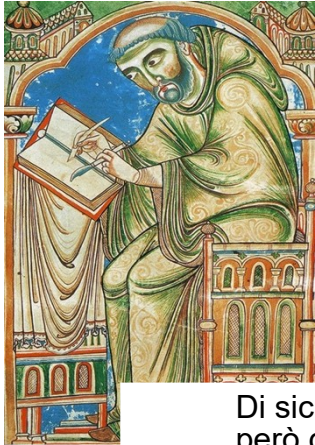 Di sic
però